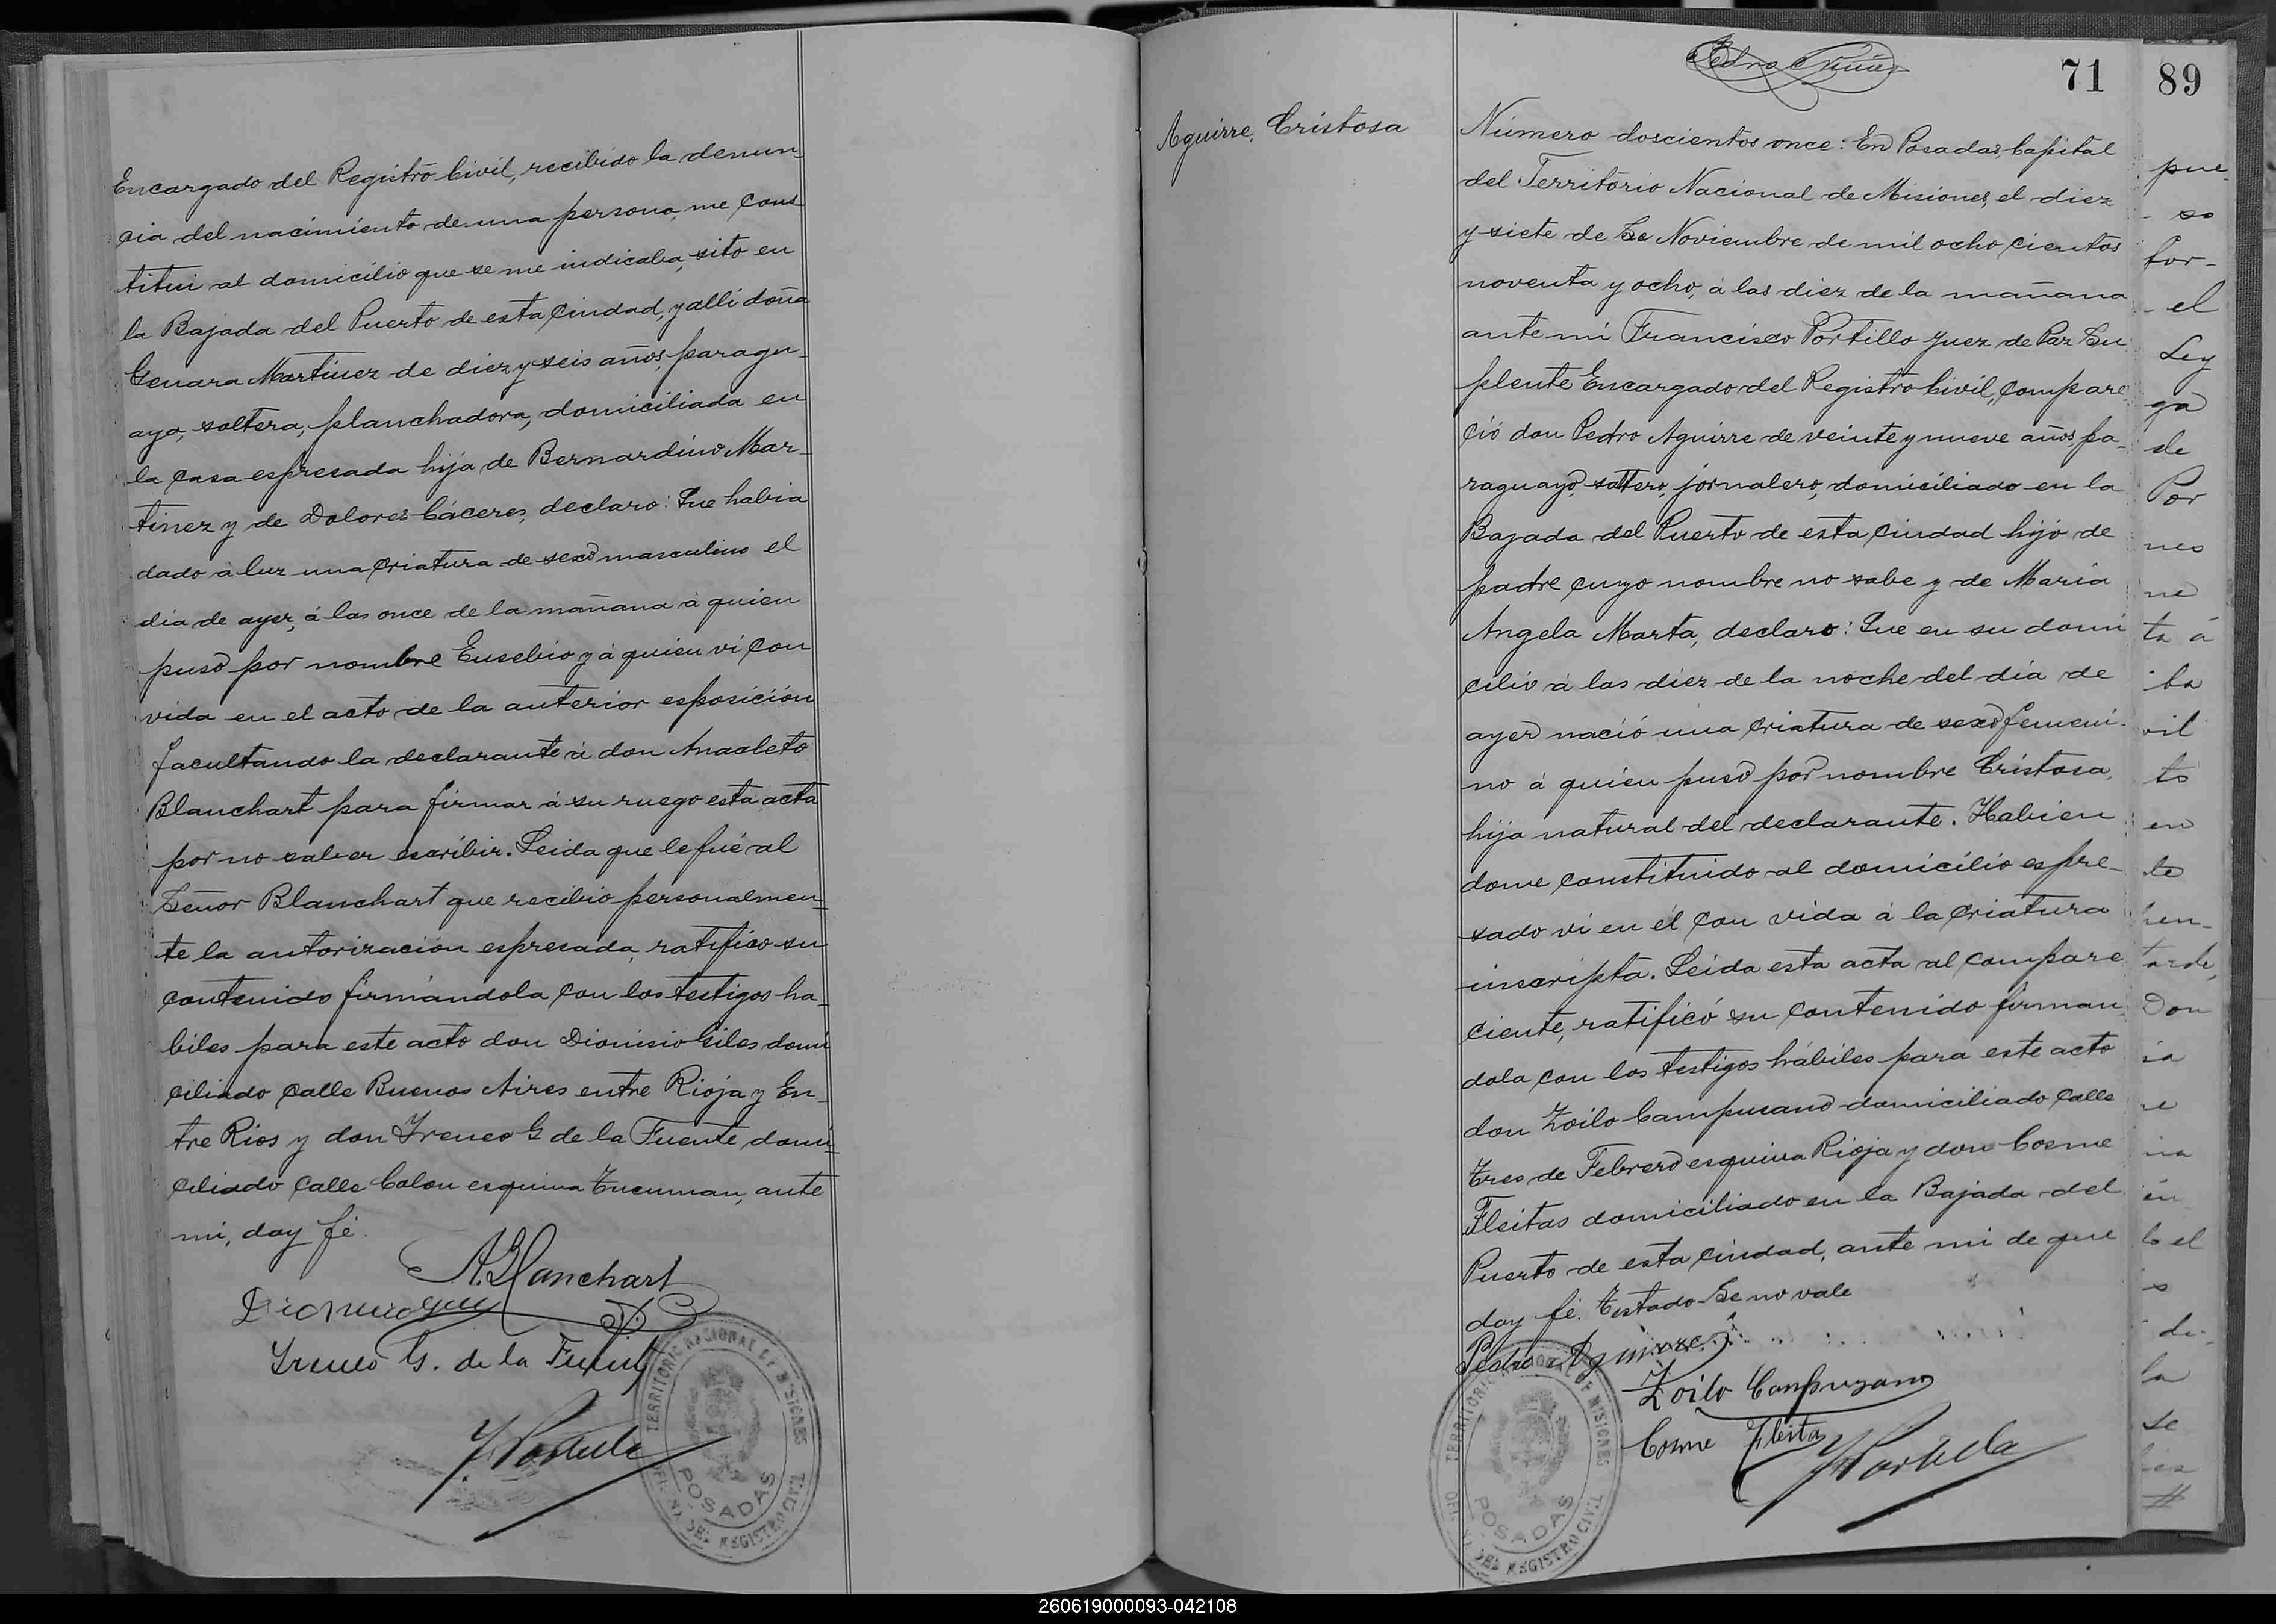 Encargado del Registro Civil, recibido la denun-
cia del nacimiento de una persona, me cons
titui al domicilio que se me indicaba, sito en
la Bajada del Puerto de esta ciudad, y alli doña
Genara Martinez de diez y seis años, paragu-
aya, soltera, planchadora, domiciliada en
la casa espresada hija de Bernardino Mar-
tinez y de Dolores Cáceres, declaro: Que habia
dado à luz una criatura de sexo masculino el
dia de ayer, á las once de la mañana à quien
puso por nombre Eusebio y á quien vi con
vida en el acto de la anterior esposición
facultando la declarante à don Anacleto
Blanchart para firmar á su ruego esta acta
por no saber escribir. Leida que le fué al
Señor Blanchart que recibió personalmen-
te la autorización espresada, ratifico su
contenido firmándola con los testigos ha-
biles para este acto don Dionisio Giles domi
ciliado calle Buenos Aires entre Rioja y En-
tre Rios y don Yreneo G de la Fuente, domi-
ciliado calle Colon esquina Tucuman, ante
mi, doy fé.
A. Blanchart
Yreneo G. de la Fuente
F. Portillo
TERRITORIO NACIONAL DE MISIONES
POSADAS
OFICINA DEL REGISTRO CIVIL
71
Aguirre, Cristosa
Número doscientos once: En Posadas, Capital
del Territorio Nacional de Misiones, el diez
y siete de Se Noviembre de mil ocho cientos
noventa y ocho, á las diez de la mañana
ante mi Francisco Portillo Juez de Paz Su
plente Encargado del Registro Civil, compare-
ció don Pedro Aguirre de veinte y nueve años, pa-
raguayo, soltero, jornalero, domiciliado en la
Bajada del Puerto de esta ciudad hijo de
padre cuyo nombre no sabe y de Maria
Angela Marta, declaro: Que en su domi
cilio à las diez de la noche del dia de
ayer nació una criatura de sexo femeni-
no á quien puso por nombre Cristosa,
hija natural del declarante. Habien
dome constituido al domicilio espre-
sado vi en él con vida á la criatura
inscripta. Leida esta acta al compare
ciente, ratificó su contenido firman
dola con los testigos hábiles para este acto
don Zoilo Campusano domiciliado calle
Tres de Febrero esquina Rioja y don Cosme
Fleitas domiciliado en la Bajada del
Puerto de esta ciudad, ante mi de que
doy fé. Testado Se no vale
Pedro Aguirre
Zoilo Campuzano
Cosme Fleitas
F. Portillo
TERRITORIO NACIONAL DE MISIONES
POSADAS
OFICINA DEL REGISTRO CIVIL
89
pue-
so
for-
el
Ley
ga
de
Por
nes
ne
ta á
ba
vil
to
en
te
tarde,
Don
ia
re
ina
én
lo el
de-
la
se
260619000093-042108